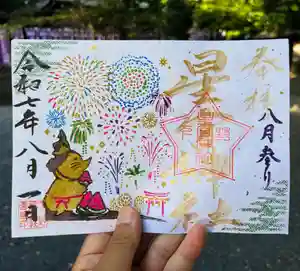 奉拝
八月参り
星田神社
令和七年八月一日